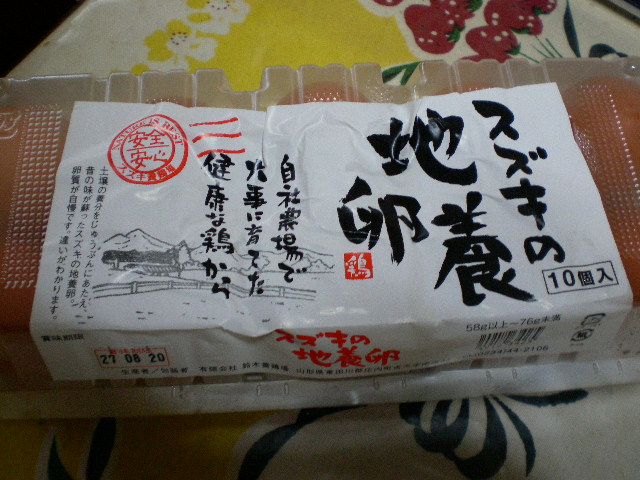 スズキの
地養
卵
鶏
10個入
58g以上〜76g未満
自社農場で
大事に育てた
健康な鶏から
NATURE'S BEST
安全
安心
スズキ養鶏場
土壌の養分をじゅうぶんにあたえ、
昔の味が蘇ったスズキの地養卵。
卵質が自慢です。違いがわかります。
スズキの
地養卵
(0234)44-2106
賞味期限
賞味期限
21.08.20
生産者/包装者 有限会社 鈴木養鶏場